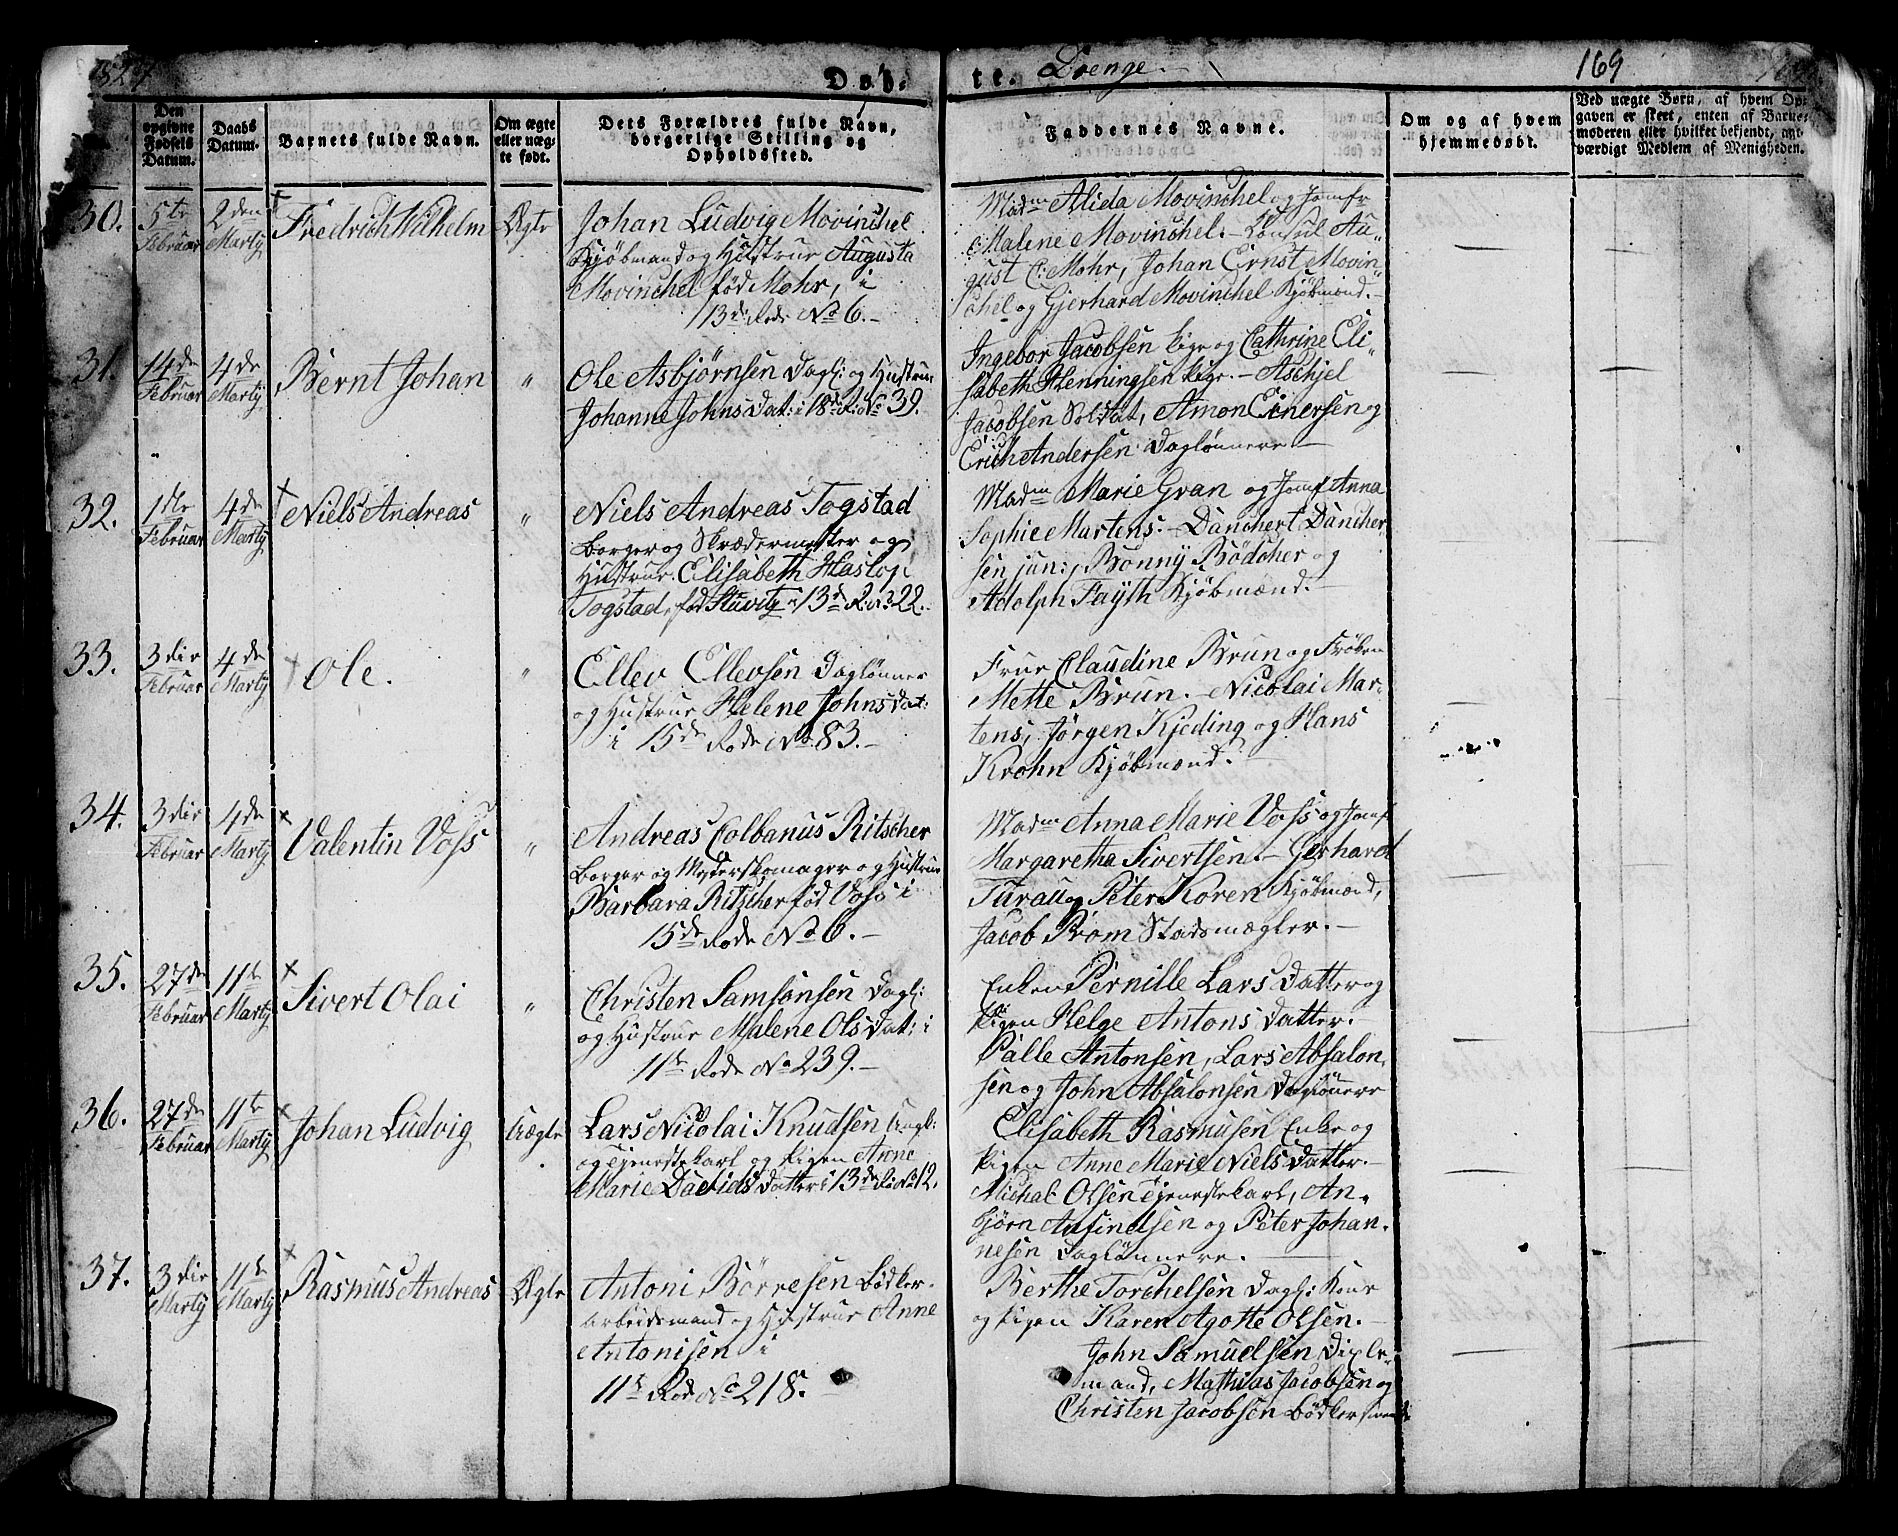 1827
Døb-
te. Drenge.
169
Den opgivne Fødsels Datum.
Daabs Datum.
Barnets fulde Navn.
Om ægte eller uægte født.
Dets Forældres fulde Navn, borgerlige Stilling og Opholdssted.
Faddernes Navne.
Om og af hvem hjemmedøbt.
Ved uægte Børn, af hvem Opgaven er skeet, enten af Barnemoderen eller hvilket bekjendt, agtværdigt Medlem af Menigheden.
30. 5te Februar 2den Marty Fredrich Wilhelm Ægte
Johan Ludvig Mowinchel
Kjøbmand og Hustrue Augusta
Mowinchel fød Mohr, i
13de Rode No 6.
Madm Alida Mowinchel og Jomfr
Malene Mowinchel. Consul Au-
gust C: Mohr, Johan Ernst Mowin-
chel og Gjerhard Mowinchel Kjøbmænd.
31. 14de Februar 4de Marty Bernt Johan "
Ole Asbjørnsen Dagl: og Hustrue
Johanne Johnsdat: i 18de R. No 39.
Ingebor Jacobsen Pige og Cathrine Eli-
sabeth Henningsen Pige. Aschjel
Jacobsen Soldat, Amon Einersen og
Erich Andersen Daglønnere
32. 1ste Februar 4de Marty Niels Andreas "
Niels Andreas Togstad
Borger og Skrædermester og
Hustrue Elisabeth Hastop
Togstad, fød Stuvitz i 13de R. No 22.
Madm Marie Gran og Jomf Anna
Sophie Martens. Danchert Dancher-
sen jun:, Bonny Bödcher og
Adolph Fayth Kjøbmænd.
33. 3die Februar 4de Marty Ole. "
Ellev Ellevsen Daglønner
og Hustrue Helene Johnsdat:
i 15de Rode No 83.
Frue Claudine Brun og Frøken
Mette Brun. Nicolai Mar-
tens, Jørgen Kjeding og Hans
Krohn Kjøbmænd.
34. 3die Februar 4de Marty Valentin Voss "
Andreas Colbanus Ritscher
Borger og Mesterskomager og Hustrue
Barbara Ritscher fød Voss i
15de Rode No 6.
Madm Anna Marie Voss og Jomf
Margaretha Sivertsen. Gerhardt
Turau og Peter Koren Kjøbmænd,
Jacob Prom Stadsmægler.
35. 27de Februar 11te Marty Sivert Olai "
Christen Samsonsen Dagl:
og Hustrue Malene Olsdat: i
11te Rode No 239.
Enken Pernille Larsdatter og
Pigen Helge Antonsdatter.
Palle Antonsen, Lars Absalon-
sen og John Absalonsen Daglønnere
36. 27de Februar 11te Marty Johan Ludvig Uægte
Lars Nicolai Knudsen Ungk:
og Tjenestekarl og Pigen Anne
Marie Davidsdatter i 13de R. No 12.
Elisabeth Rasmusen Enke og
Pigen Anne Marie Nielsdatter.
Michal Olsen Tjenestekarl, An-
bjørn Ansinelsen og Peter Johan-
nesen Daglønnere.
37. 3die Marty 11te Marty Rasmus Andreas Ægte
Antoni Börresen Bødker-
arbeidsmand og Hustrue Anne
Antonisen i
11te Rode No 218.
Berthe Torchelsen Dagl: Kone
og Pigen Karen Agotte Olsen.
John Samuelsen
mand, Mathias Jacobsen og
Christen Jacobsen Bødkersvende